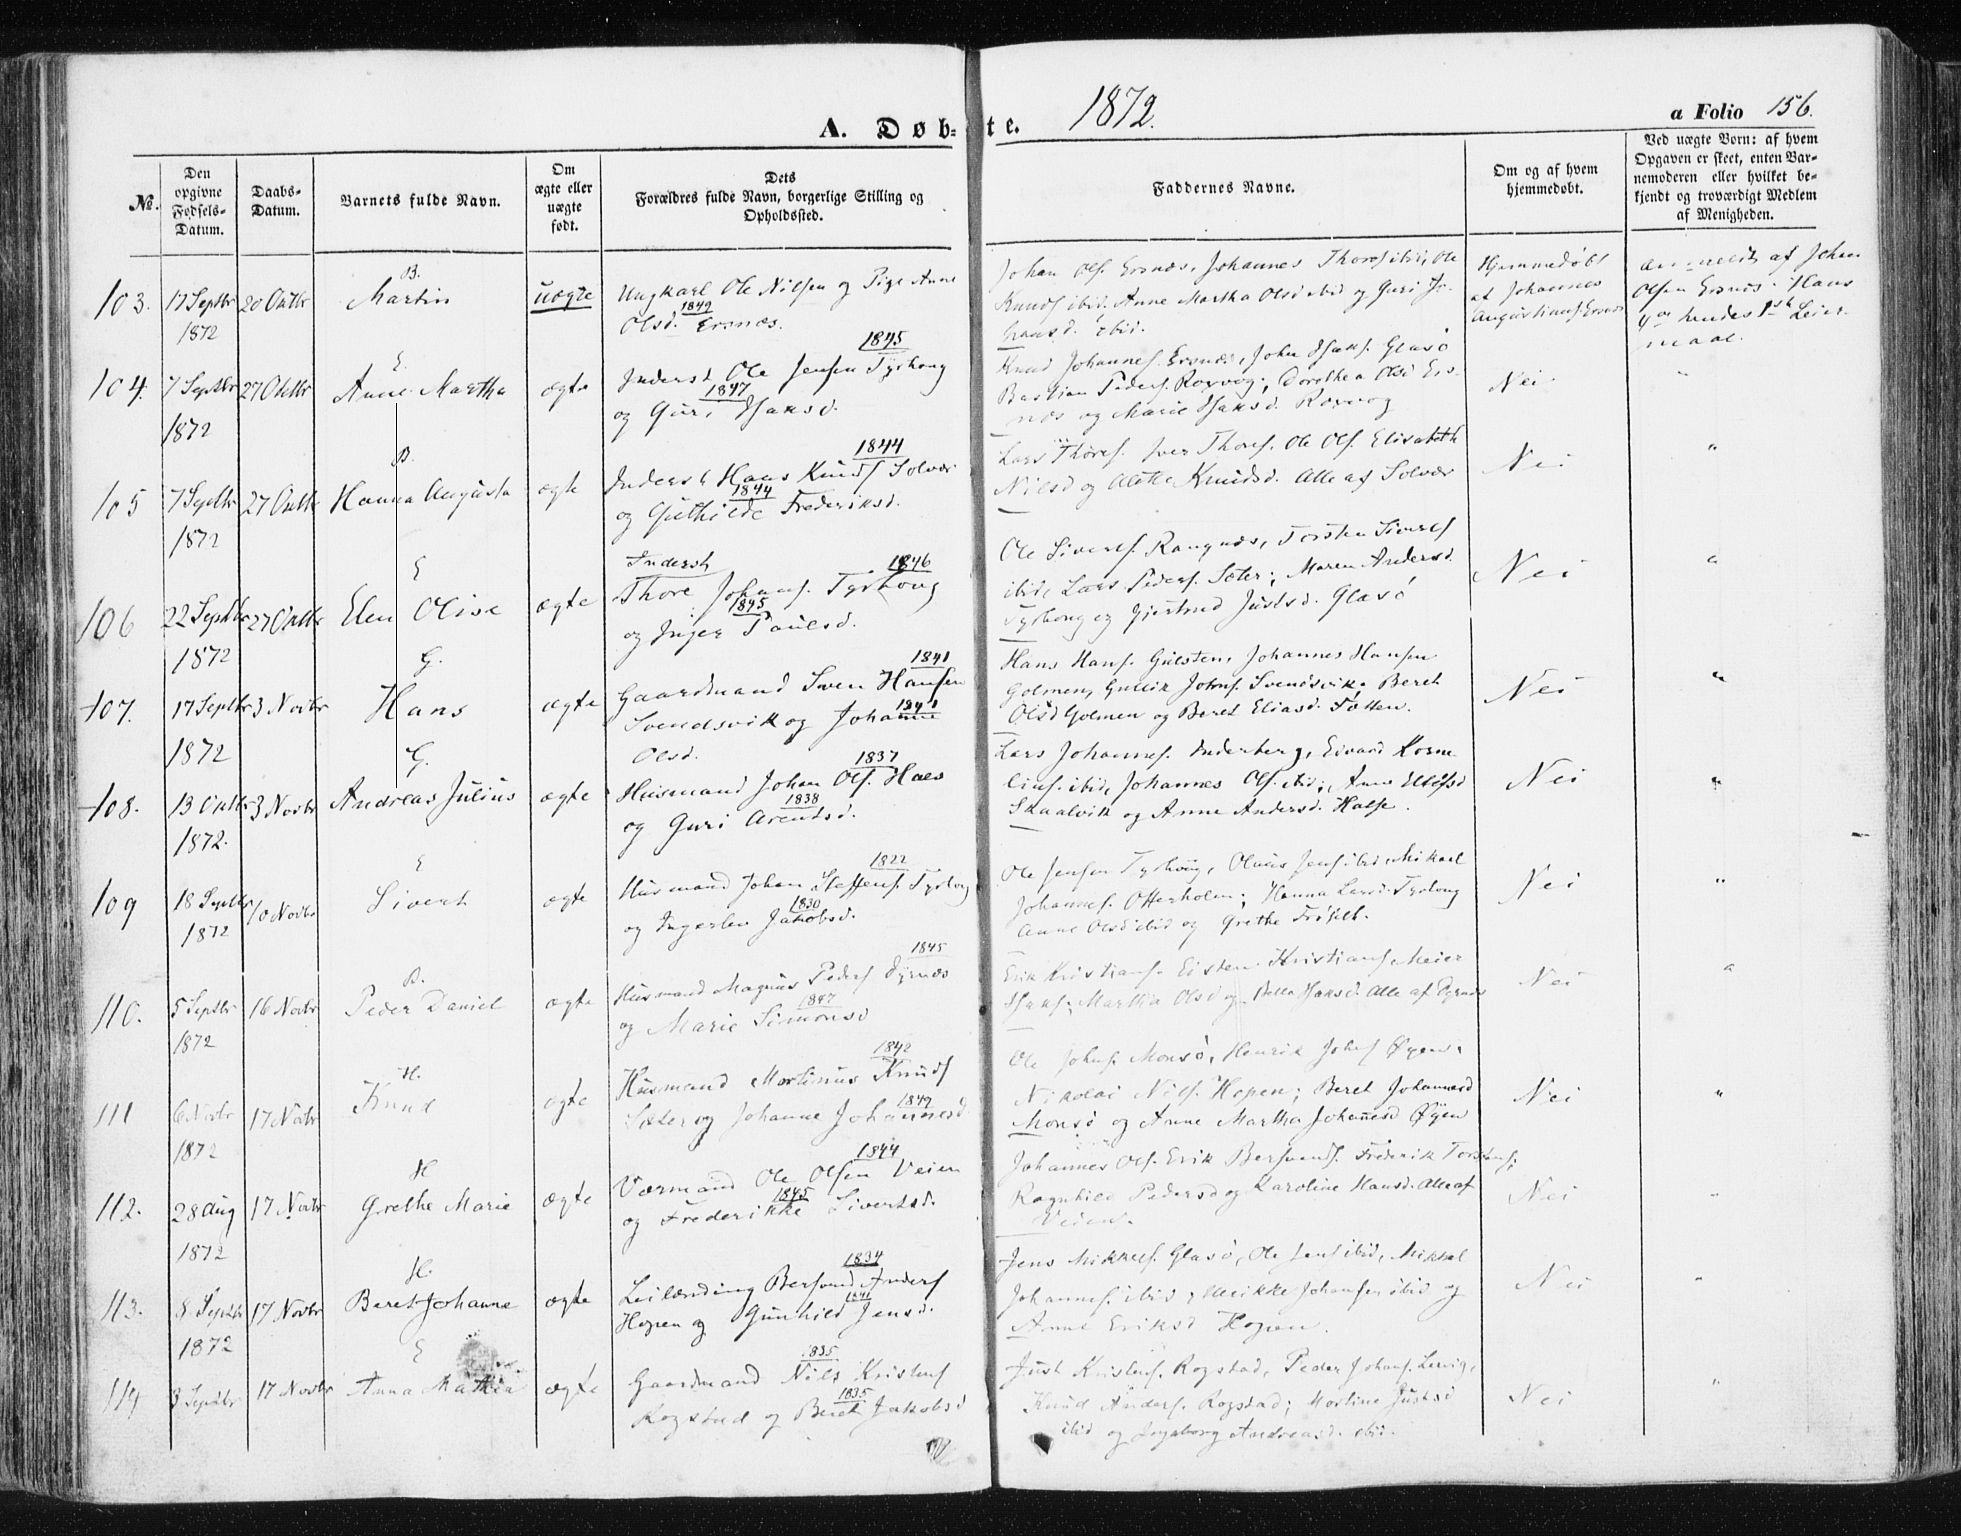 A. Døb-te. 1872. a Folio 156.
No.
Den opgivne Fødsels-Datum.
Daabs-Datum.
Barnets fulde Navn.
Om ægte eller uægte født.
Dets Forældres fulde Navn, borgerlige Stilling og Opholdssted.
Faddernes Navne.
Om og af hvem hjemmedøbt.
Ved uægte Børn: af hvem Opgaven er skeet, enten Barnemoderen eller hvilket bekjendt og troværdigt Medlem af Menigheden.
103. 17 Septbr 1872 20 Oktbr B. Martin uægte
Ungkarl Ole Nilsen og Pige Anne
Olsd. 1849 Ersnæs.
Johan Ols. Ersnæs, Johannes Thores. ibid, Ole
Knuds. ibid. Anne Martha Olsd ibid og Guri Jo-
hansd. ibid.
Hjemmedøbt
af Johannes
Augustinus. Ersnæs
anmeldt af Johan
Olsen Ersnæs. Hans
4de hendes 1ste Leier-
maal.
104. 7 Septbr 1872 27 Oktbr E. Anne Martha ægte
1845
Inderst Ole Jensen Tyrhoug
1847
og Guri Isaksd.
Knud Johannes. Ersnæs, John Isaks. Glasø
Bastian Peders. Roxvog; Dorothea Olsd Ers-
næs og Marie Isaksd. Roxvog
Nei "
105 7 Septbr 1872 27 Oktbr B. Hanna Augusta ægte
1844
Inderst Hans Knuds. Solvær
1844
og Guthilde Frederiksd.
Lars Thores. Iver Thores. Ole Ols. Elisabeth
Nilsd og Alette Knudsd. Alle af Solvær
Nei "
106 22 Septbr 1872 27 Oktbr E Elen Olise ægte
Inderst 1846
Thore Johans. Tyrhoug
1845
og Inger Paulsd.
Ole Siverts. Rangnæs, Torsten Siverts
ibid, Lars Peders. Sæter; Maren Andersd
Tyrhoug og Gjertrud Justsd. Glasø
Nei "
107. 17 Septbr 1872 3 Novbr G. Hans ægte
1841
Gaardmand Sven Hansen
1841
Svendsvik og Johanne
Olsd.
Hans Hans. Gulsten, Johannes Hansen
Golmen, Gullik Johns. Svendsvik; Beret
Olsd Golmen og Beret Eliasd. Fætten.
Nei "
108. 13 Oktbr 1872. 3 Novbr G. Andreas Julius ægte
1837
Husmand Johan Ols. Haes
1838
og Guri Arentsd.
Lars Johannes. Inderberg, Edvard Korne-
lius. ibid, Johannes Ols. ibid; Anne Ellefsd
Skaalvik og Anne Andersd. Halse.
Nei "
109 18 Septbr 1872 10 Novbr E Sivert ægte
1822
Husmand Johan Steffens. Tyrhoug
1830
og Ingerlev Jakobsd.
Ole Jensen Tyrhoug, Oluus Jens. ibid, Mikael
Johannes. Otterholm; Hanna Larsd. Tyrhoug
Anne Olsd ibid og Grethe Friset.
Nei "
110. 5 Septbr 1872 16 Novbr B. Peder Daniel ægte
1845
Husmand Magnus Peders Dyrnæs
1847
og Marie Simonsd
Erik Kristians. Eisten Kristians. Meier
Isaks. Martha Olsd og Bella Isaksd. Alle af Dyrnæs
Nei "
111 6 Novbr 1872 17 Novbr H. Knud ægte
1842
Husmand Mortinus Knuds
1849
Sæter og Johanne Johannesd
Ole Johns. Monsø, Henrik Johns Øyen,
Nikolai Nils. Hopen; Beret Johannesd
Monsø og Anne Martha Johannesd Øyen
Nei "
112. 28 Aug 1872 17 Novbr H Grethe Marie ægte
1844
Værmand Ole Olsen Veien
1845
og Frederikke Sivertsd.
Johannes Ols. Erik Bersvends. Frederik Torstens;
Ragnhild Pedersd og Karoline Hansd. Alle af
Veien.
Nei "
113. 8 Septbr 1872 17 Novbr H. Beret Johanne ægte
1834
Leilænding Bersvend Anders
1841
Hopen og Gunhild Jensd.
Jens Mikkels. Glasø, Ole Jens. ibid, Mikkal
Johannes. ibid, Ulrikke Johansen ibid og
Anne Eriksd Hopen.
Nei "
114 3 Septbr 17 Novbr E Anna Mathea ægte
1835
Gaardmand Nils Kristens
1835
Rogstad og Beret Jakobsd
Just Kristens. Rogstad, Peder Johans. Lervig,
Knud Anders. Rogstad; Mortine Justsd
ibid og Ingeborg Andreasd. ibid.
Nei "